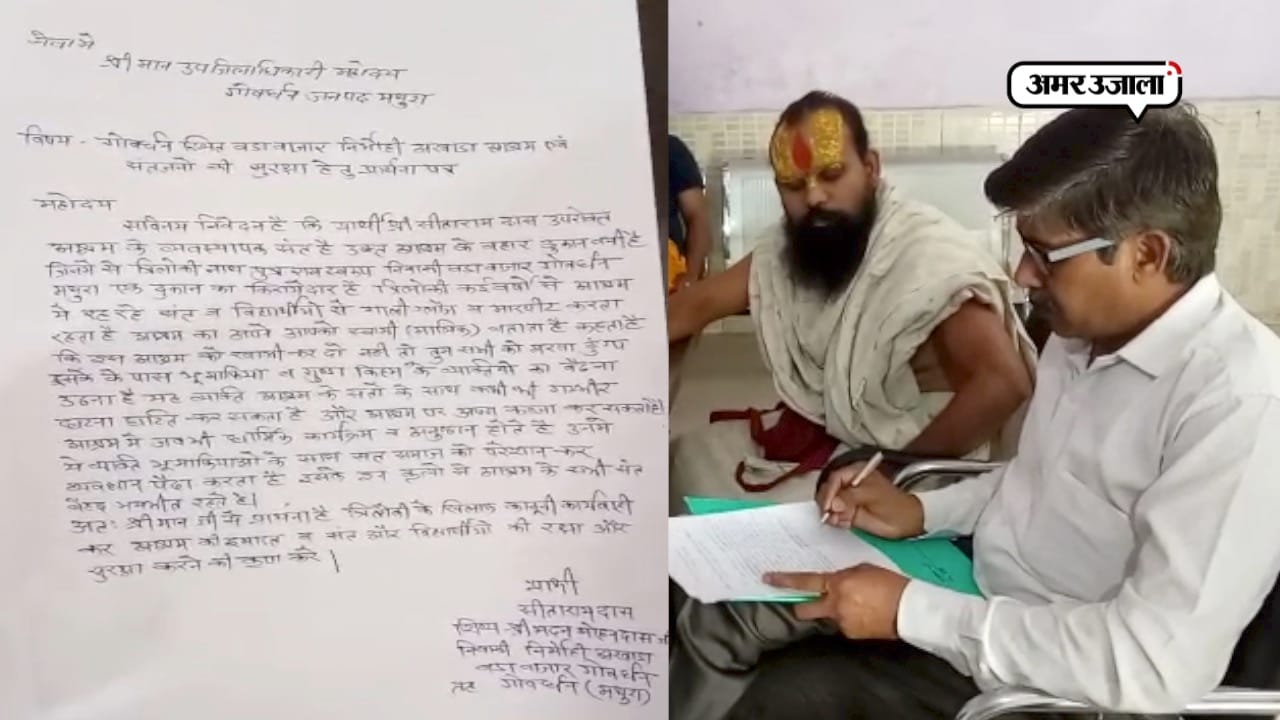 सेवा में
श्री मान उपजिलाधिकारी महोदय
गोवर्धन जनपद मथुरा
विषय - गोवर्धन स्थित बडा बाजार निर्मोही अखाडा आश्रम एवं
संतजनो की सुरक्षा हेतु प्रार्थना पत्र
महोदय
सविनय निवेदन है कि प्रार्थी श्री सीताराम दास उपरोक्त
आश्रम के व्यवस्थापक संत है उक्त आश्रम के बहार दुकान बनी है
जिनमे से त्रिलोकी नाथ पुत्र निवासी बडा बाजार गोवर्धन
मथुरा एक दुकान का किरायेदार है त्रिलोकी कई वर्षो से आश्रम
मे रह रहे संत व विद्यार्थीयो से गाली ग्लोज व मारपीट करता
रहता है आश्रम का अपने आपको स्वामी (मालिक) बताता है कहता है
कि इस आश्रम को खाली कर दो नही तो तुम सभी को मरवा दुंगा
इसके के पास भूमाफिया व गुण्डा किस्म के व्यक्तियो का बैठना
उठना है यह व्यक्ति आश्रम के संतो के साथ कभी भी गम्भीर
घटना घटित कर सकता है और आश्रम पर अपना कब्जा कर सकता है।
आश्रम मे जब भी धार्मिक कार्यक्रम व अनुष्ठान होते है उनमे
ये व्यक्ति भूमाफियाओ के साथ संत समाज को परेशान कर
व्यवधान पैदा करता है इसके इन कृत्यो से आश्रम के सभी संत
बेहद भयभीत रहते है।
अतः श्रीमान जी से प्रार्थना है त्रिलोकी के खिलाफ कानूनी कार्यवाही
कर आश्रम की इमारत व संत और विद्यार्थीयो की रक्षा और
सुरक्षा करने की कृपा करे।
प्रार्थी
सीताराम दास
शिष्य - श्री मदन मोहन दास जी
निवासी निर्मोही अखाडा
बडा बाजार गोवर्धन
तह गोवर्धन (मथुरा)
अमर उजाला